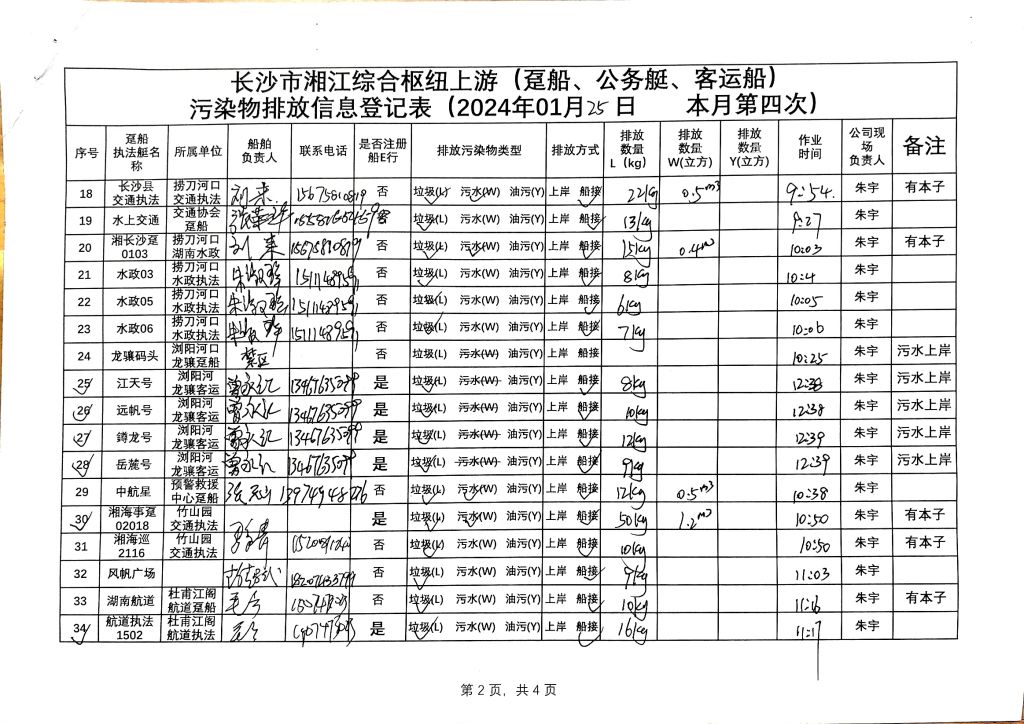 长沙市湘江综合枢纽上游（趸船、公务艇、客运船）
污染物排放信息登记表（2024年01月25日 本月第四次）
序号 趸船执法艇名称 所属单位 船舶负责人 联系电话 是否注册船E行 排放污染物类型 排放方式 排放数量L（kg） 排放数量W(立方) 排放数量Y(立方) 作业时间 公司现场负责人 备注
18 长沙县交通执法 捞刀河口交通执法 刘来 否 垃圾(L) 污水(W) 油污(Y) 上岸 船接 22kg 0.5m3 9:54 朱宇 有本子
19 水上交通 交通协会趸船 否 垃圾(L) 污水(W) 油污(Y) 上岸 船接 13kg 9:27 朱宇
20 湘长沙趸0103 捞刀河口湖南水政 刘来 否 垃圾(L) 污水(W) 油污(Y) 上岸 船接 15kg 0.4m3 10:03 朱宇 有本子
21 水政03 捞刀河口水政执法 否 垃圾(L) 污水(W) 油污(Y) 上岸 船接 8kg 10:4 朱宇
22 水政05 捞刀河口水政执法 否 垃圾(L) 污水(W) 油污(Y) 上岸 船接 6kg 10:05 朱宇
23 水政06 捞刀河口水政执法 否 垃圾(L) 污水(W) 油污(Y) 上岸 船接 7kg 10:06 朱宇
24 龙骧码头 浏阳河口龙骧趸船 否 垃圾(L) 污水(W) 油污(Y) 上岸 船接 10:25 朱宇 污水上岸
25 江天号 浏阳河龙骧客运 13467635099 是 垃圾(L) 污水(W) 油污(Y) 上岸 船接 8kg 12:38 朱宇 污水上岸
26 远帆号 浏阳河龙骧客运 13467635099 是 垃圾(L) 污水(W) 油污(Y) 上岸 船接 10kg 12:38 朱宇 污水上岸
27 鐏龙号 浏阳河龙骧客运 13467635099 是 垃圾(L) 污水(W) 油污(Y) 上岸 船接 12kg 12:39 朱宇 污水上岸
28 岳麓号 浏阳河龙骧客运 是 垃圾(L) 污水(W) 油污(Y) 上岸 船接 9kg 12:39 朱宇 污水上岸
29 中航星 预警救援中心趸船 否 垃圾(L) 污水(W) 油污(Y) 上岸 船接 12kg 0.5m3 10:38 朱宇
30 湘海事趸02018 竹山园交通执法 是 垃圾(L) 污水(W) 油污(Y) 上岸 船接 50kg 1.2m3 10:50 朱宇 有本子
31 湘海巡2116 竹山园交通执法 否 垃圾(L) 污水(W) 油污(Y) 上岸 船接 10kg 10:50 朱宇 有本子
32 风帆广场 否 垃圾(L) 污水(W) 油污(Y) 上岸 船接 9kg 11:03 朱宇
33 湖南航道 杜甫江阁航道趸船 否 垃圾(L) 污水(W) 油污(Y) 上岸 船接 10kg 11:16 朱宇 有本子
34 航道执法1502 杜甫江阁航道执法 是 垃圾(L) 污水(W) 油污(Y) 上岸 船接 16kg 11:17 朱宇
第 2 页，共 4 页